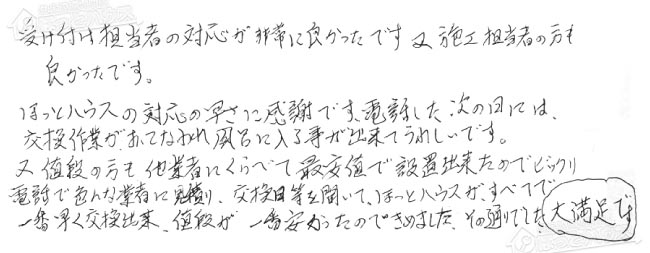 受け付け担当者の対応が非常に良かったです 又 施工担当者の方も
良かったです。
ほっとハウスの対応の早さに感謝です、電話した次の日には、
交換作業がおこなわれ風呂に入る事が出来てうれしいです。
又 値段の方も他業者にくらべて最安値で設置出来たのでビックリ
電話で色んな業者に見積り、交換日等を聞いて、ほっとハウスが、すべてで
一番早く交換出来、値段が一番安かったのできめました、その通りでした 大満足です